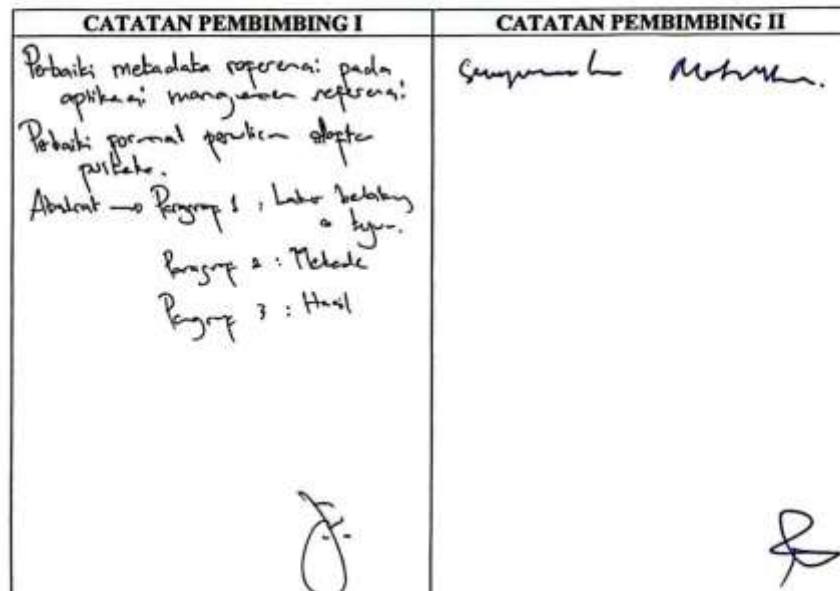 CATATAN PEMBIMBING I
Perbaiki metadata referensi pada
aplikasi manajemen referensi
Perbaiki format penulisan daftar
pustaka.
Abstrak → Paragrap 1 : Latar belakang
& tujuan.
Paragrap 2 : Metode
Paragrap 3 : Hasil
CATATAN PEMBIMBING II